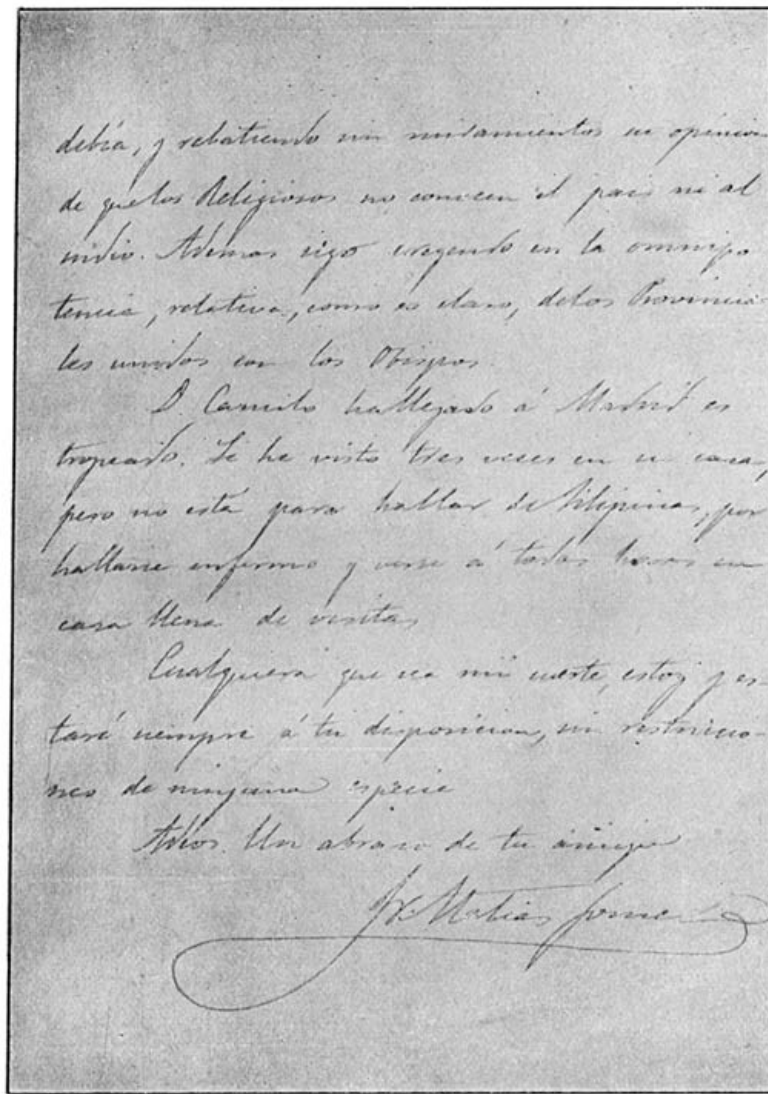 debía, y rebatiendo sin miramientos su opinion
de que los Religiosos no conocen el pais ni al
indio. Ademas sigo creyendo en la omnipo
tencia, relativa, como es claro, de los Provincia
les unidos con los Obispos.
D. Camilo ha llegado á Madrid es
tropeado. Le he visto tres veces en su casa,
pero no está para hablar de Filipinas, por
hallarse enfermo y verse á todas horas su
casa llena de visitas
Cualquiera que sea mi suerte, estoy y es-
taré siempre á tu disposicion, sin restriccio-
nes de ninguna especie
Adios. Un abrazo de tu amigo
Fr. Matias